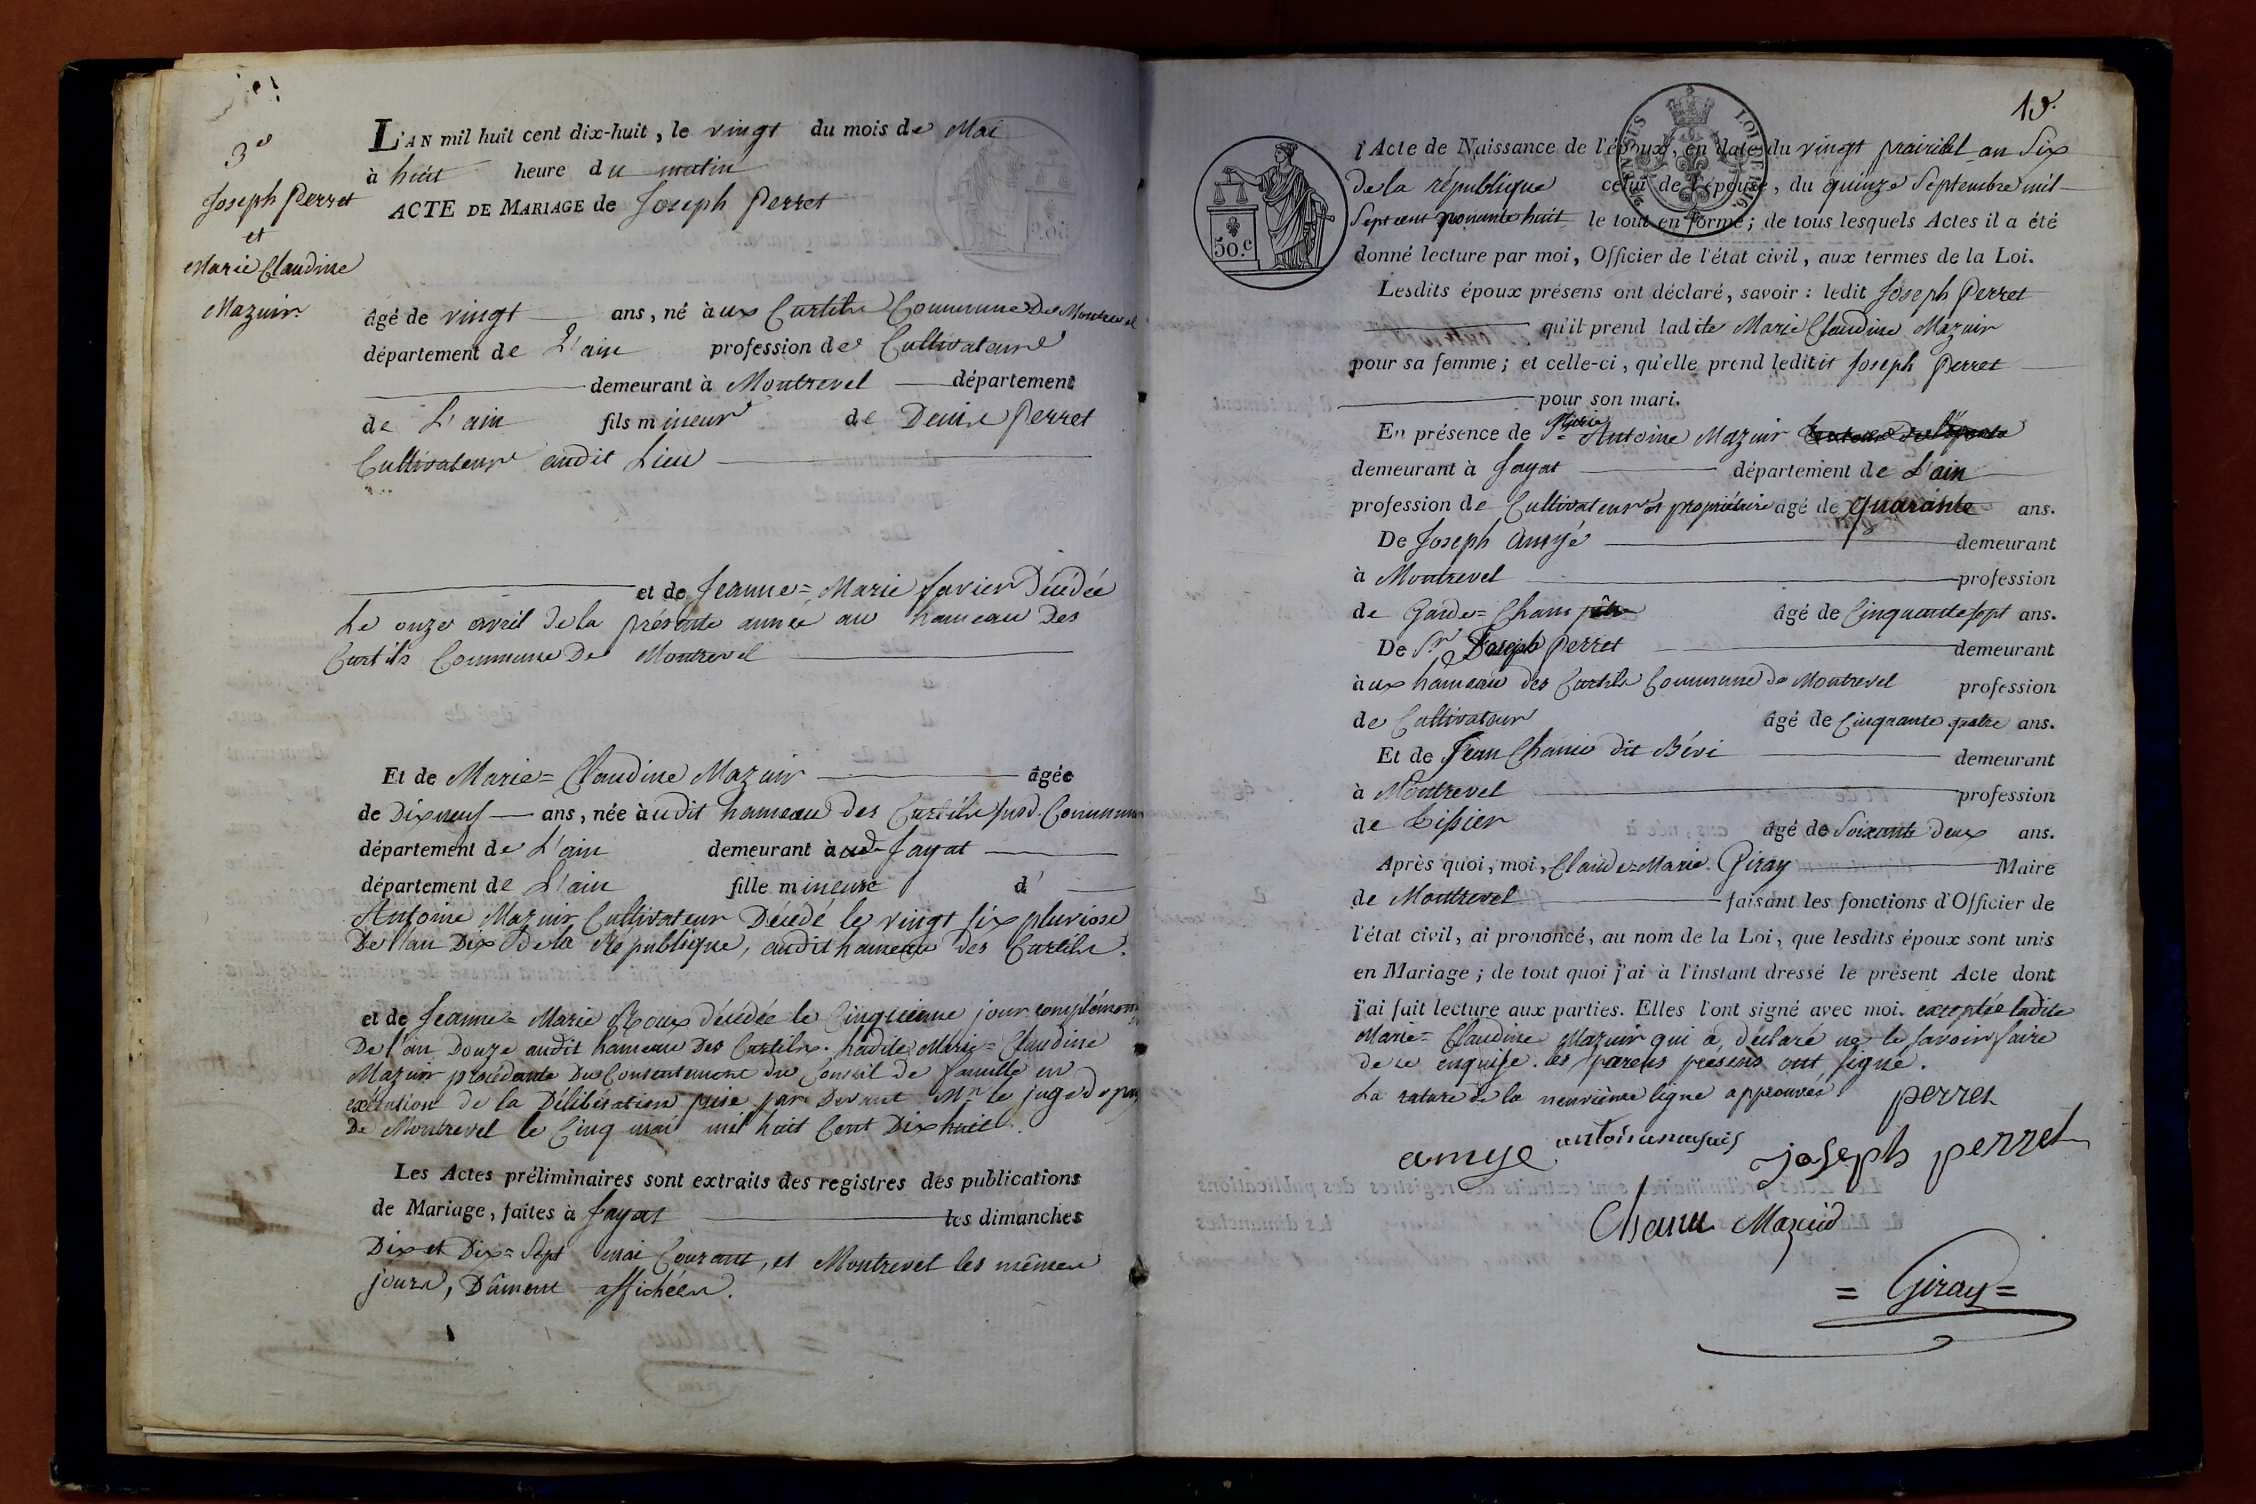 3e
Joseph Perret
et
Marie Claudine
Mazuir
L'AN mil huit cent dix-huit, le vingt du mois de Mai
à huit heure du matin
ACTE DE MARIAGE de Joseph Perret
âgé de vingt ans, né àux Curtils Commune De Montrevel
département de L'ain profession de Cultivateur
demeurant à Montrevel département
de L'ain fils mineur de Denis Perret
Cultivateur audit Lieu
et de Jeanne=Marie Favier Décédée
Le onze avril de la présente année au hameau Des
Curtils Commune De Montrevel
Et de Marie=Claudine Mazuir âgée
de Dixneuf ans, née àudit hameau des Curtils susd. Commune
département de L'ain demeurant à Jayat
département de L'ain fille mineure d'
Antoine Mazuir Cultivateur Décédé le vingt six pluviose
De l'an Dix de la République, audit hameau des Curtils.
et de Jeanne=Marie Roux décédée le Cinquieme jour complémen
De l'an Douze audit hameau Des Curtils. Ladite Marie=Claudine
Mazuir procédante Du Consentement du Conseil de famille en
exécution de la Délibération prise par Devant Mr le juge de paix
De Montrevel le Cinq mai mil huit Cent Dix huit.
Les Actes préliminaires sont extraits des registres des publications
de Mariage, faites à Jayat les dimanches
Dix et Dix=Sept mai Courant, et Montrevel les mêmes
jours, Dûment affichées.
50.c
LOI DE 1816
19.
l'Acte de Naissance de l'époux, en date du vingt prairial an Six
de la république celui de l'épouse, du quinze Septembre mil
Sept cent nonante huit le tout en forme; de tous lesquels Actes il a été
donné lecture par moi, Officier de l'état civil, aux termes de la Loi.
Lesdits époux présens ont déclaré, savoir: ledit Joseph Perret
qu'il prend ladite Marie Claudine Mazuir
pour sa femme; et celle-ci, qu'elle prend ledit Joseph Perret
pour son mari.
En présence de Sr Antoine Mazuir
demeurant à Jayat département de L'ain
profession de Cultivateur et propriétaire âgé de quarante ans.
De Joseph Amyé demeurant
à Montrevel profession
de Garde=Champêtre âgé de Cinquante sept ans.
De Sr Joseph Perret demeurant
àux hameau des Curtils Commune de Montrevel profession
de Cultivateur âgé de Cinquante quatre ans.
Et de Jean Chanu dit Bévi demeurant
à Montrevel profession
de Tissier âgé de Soixante deux ans.
Après quoi, moi, Claude=Marie Giray Maire
de Montrevel faisant les fonctions d'Officier de
l'état civil, ai prononcé, au nom de la Loi, que lesdits époux sont unis
en Mariage; de tout quoi j'ai à l'instant dressé le présent Acte dont
j'ai fait lecture aux parties. Elles l'ont signé avec moi. exceptée ladite
Marie=Claudine Mazuir qui a déclaré ne le savoir faire
de ce enquise. les parens presens ont signé.
La rature de la neuvième ligne approuvée
perret
amye
joseph perret
Chanu Mazuid
=Giray=